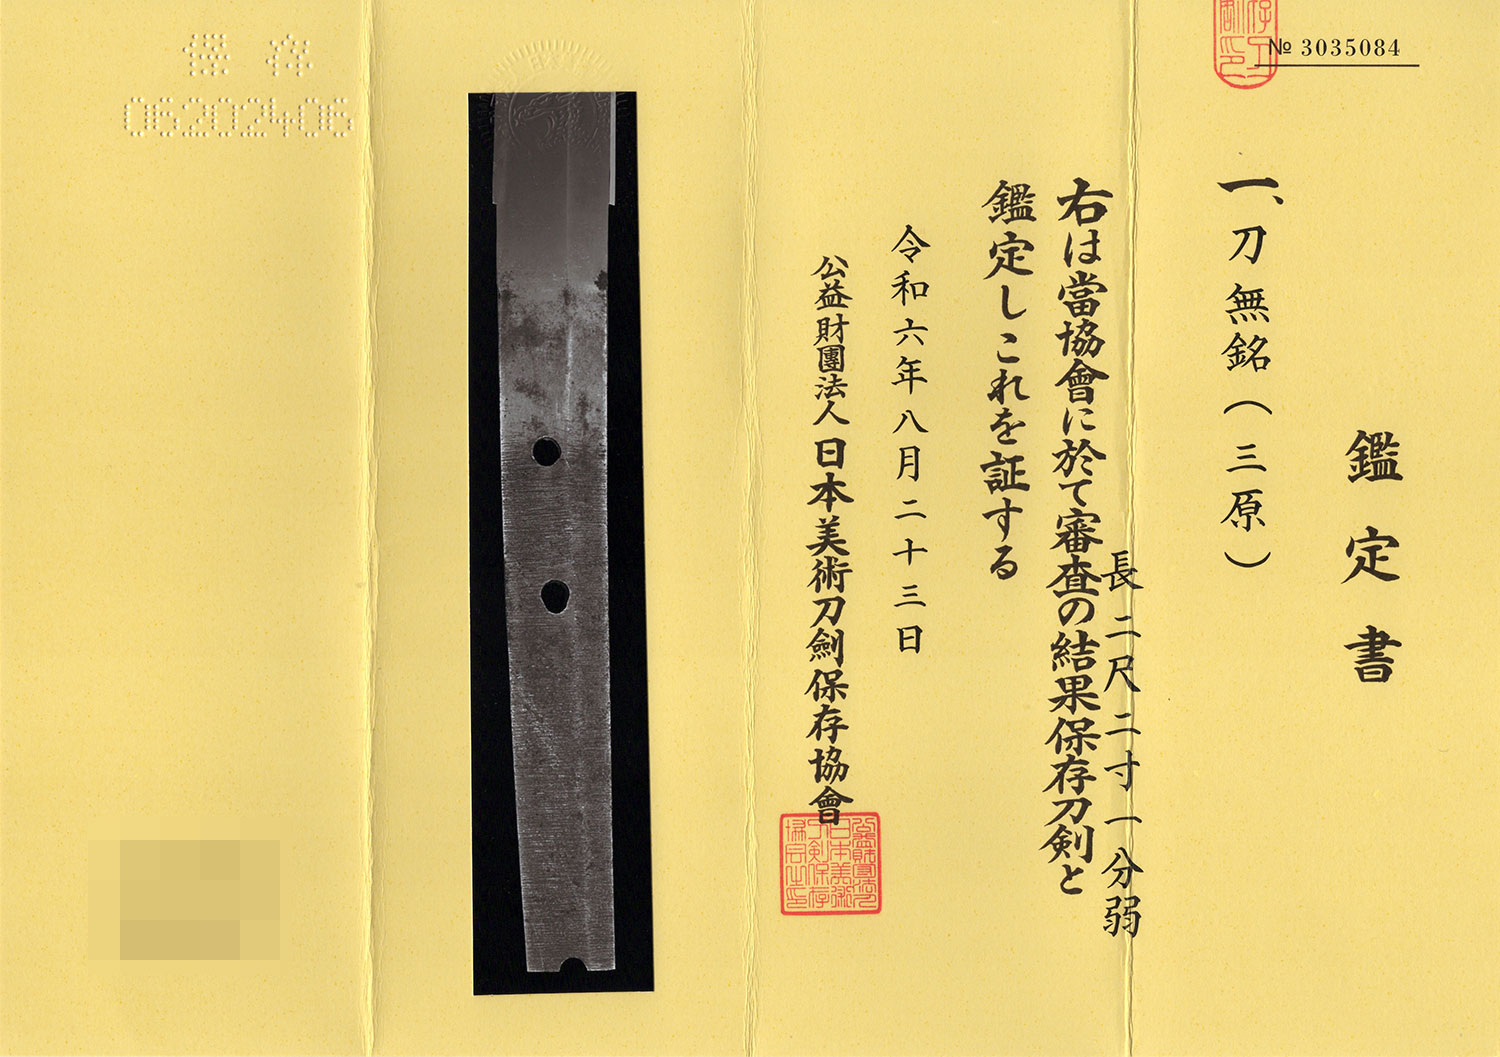 № 3035084
鑑定書
一、刀無銘（三原）
長二尺二寸一分弱
右は當協會に於て審査の結果保存刀剣と
鑑定しこれを証する
令和六年八月二十三日
公益財團法人日本美術刀劍保存協會
保存
06202406